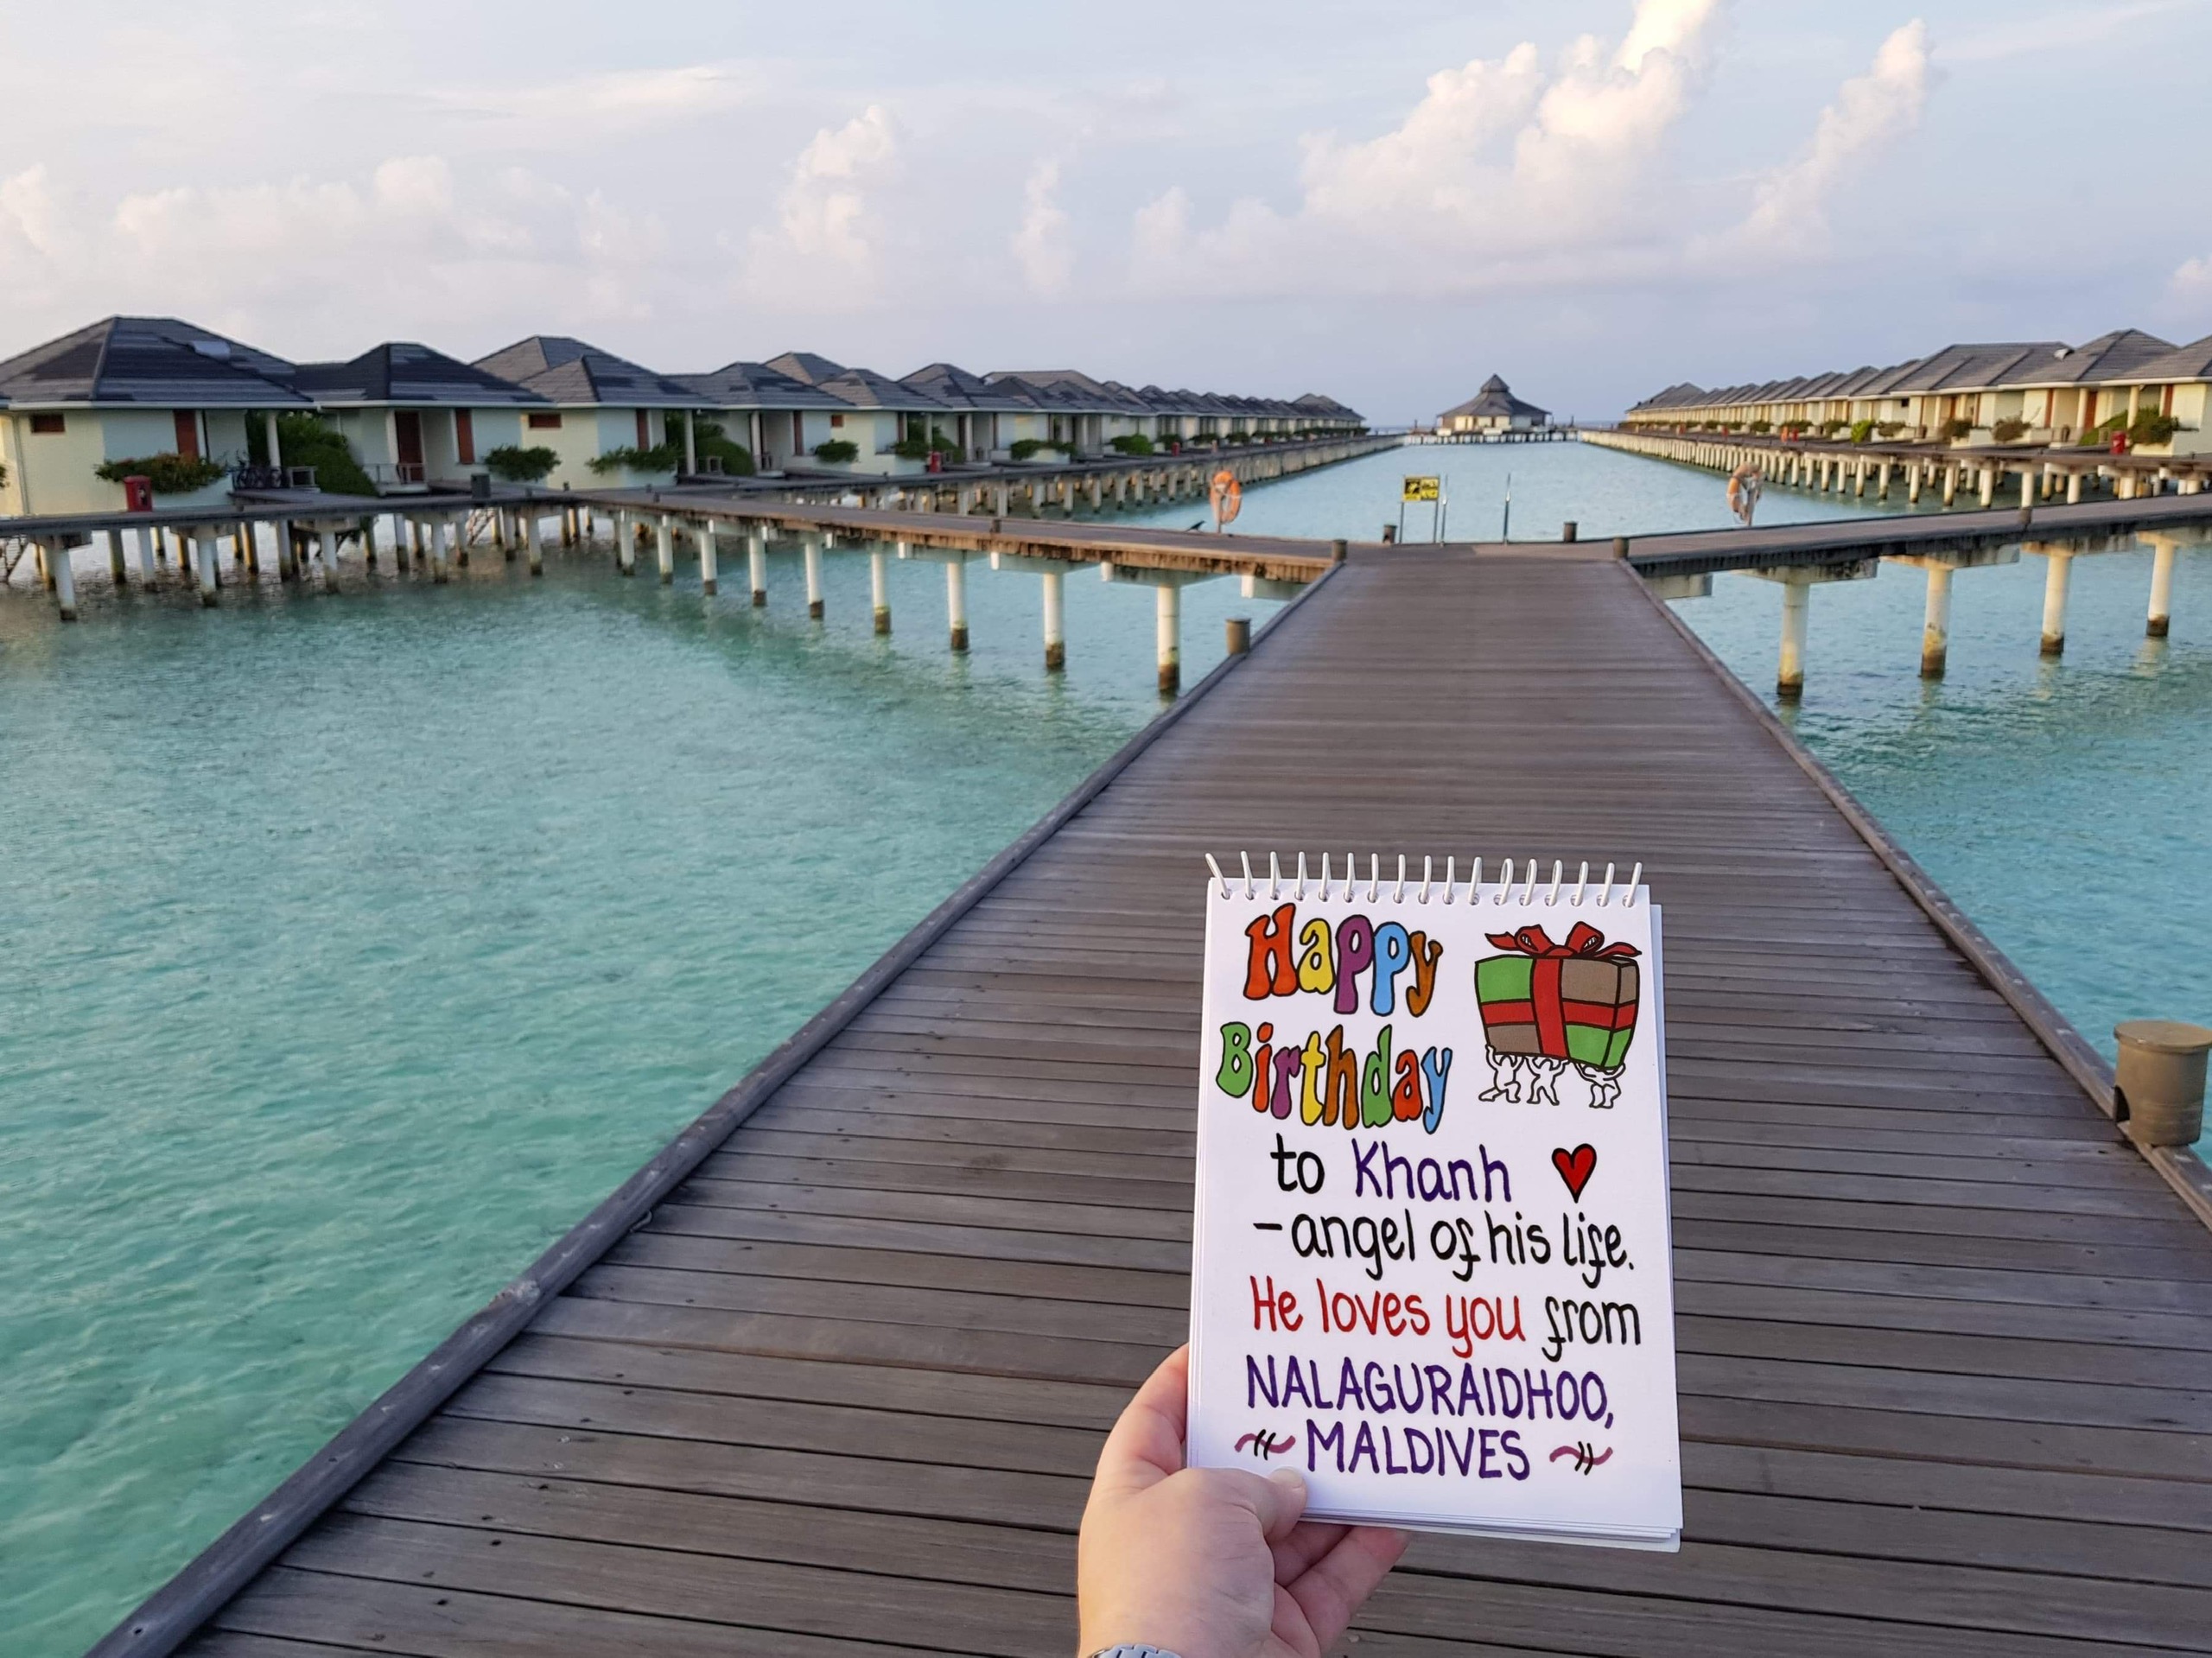 Happy
Birthday
to Khanh ♥
- angel of his life.
He loves you from
NALAGURAIDHOO,
MALDIVES